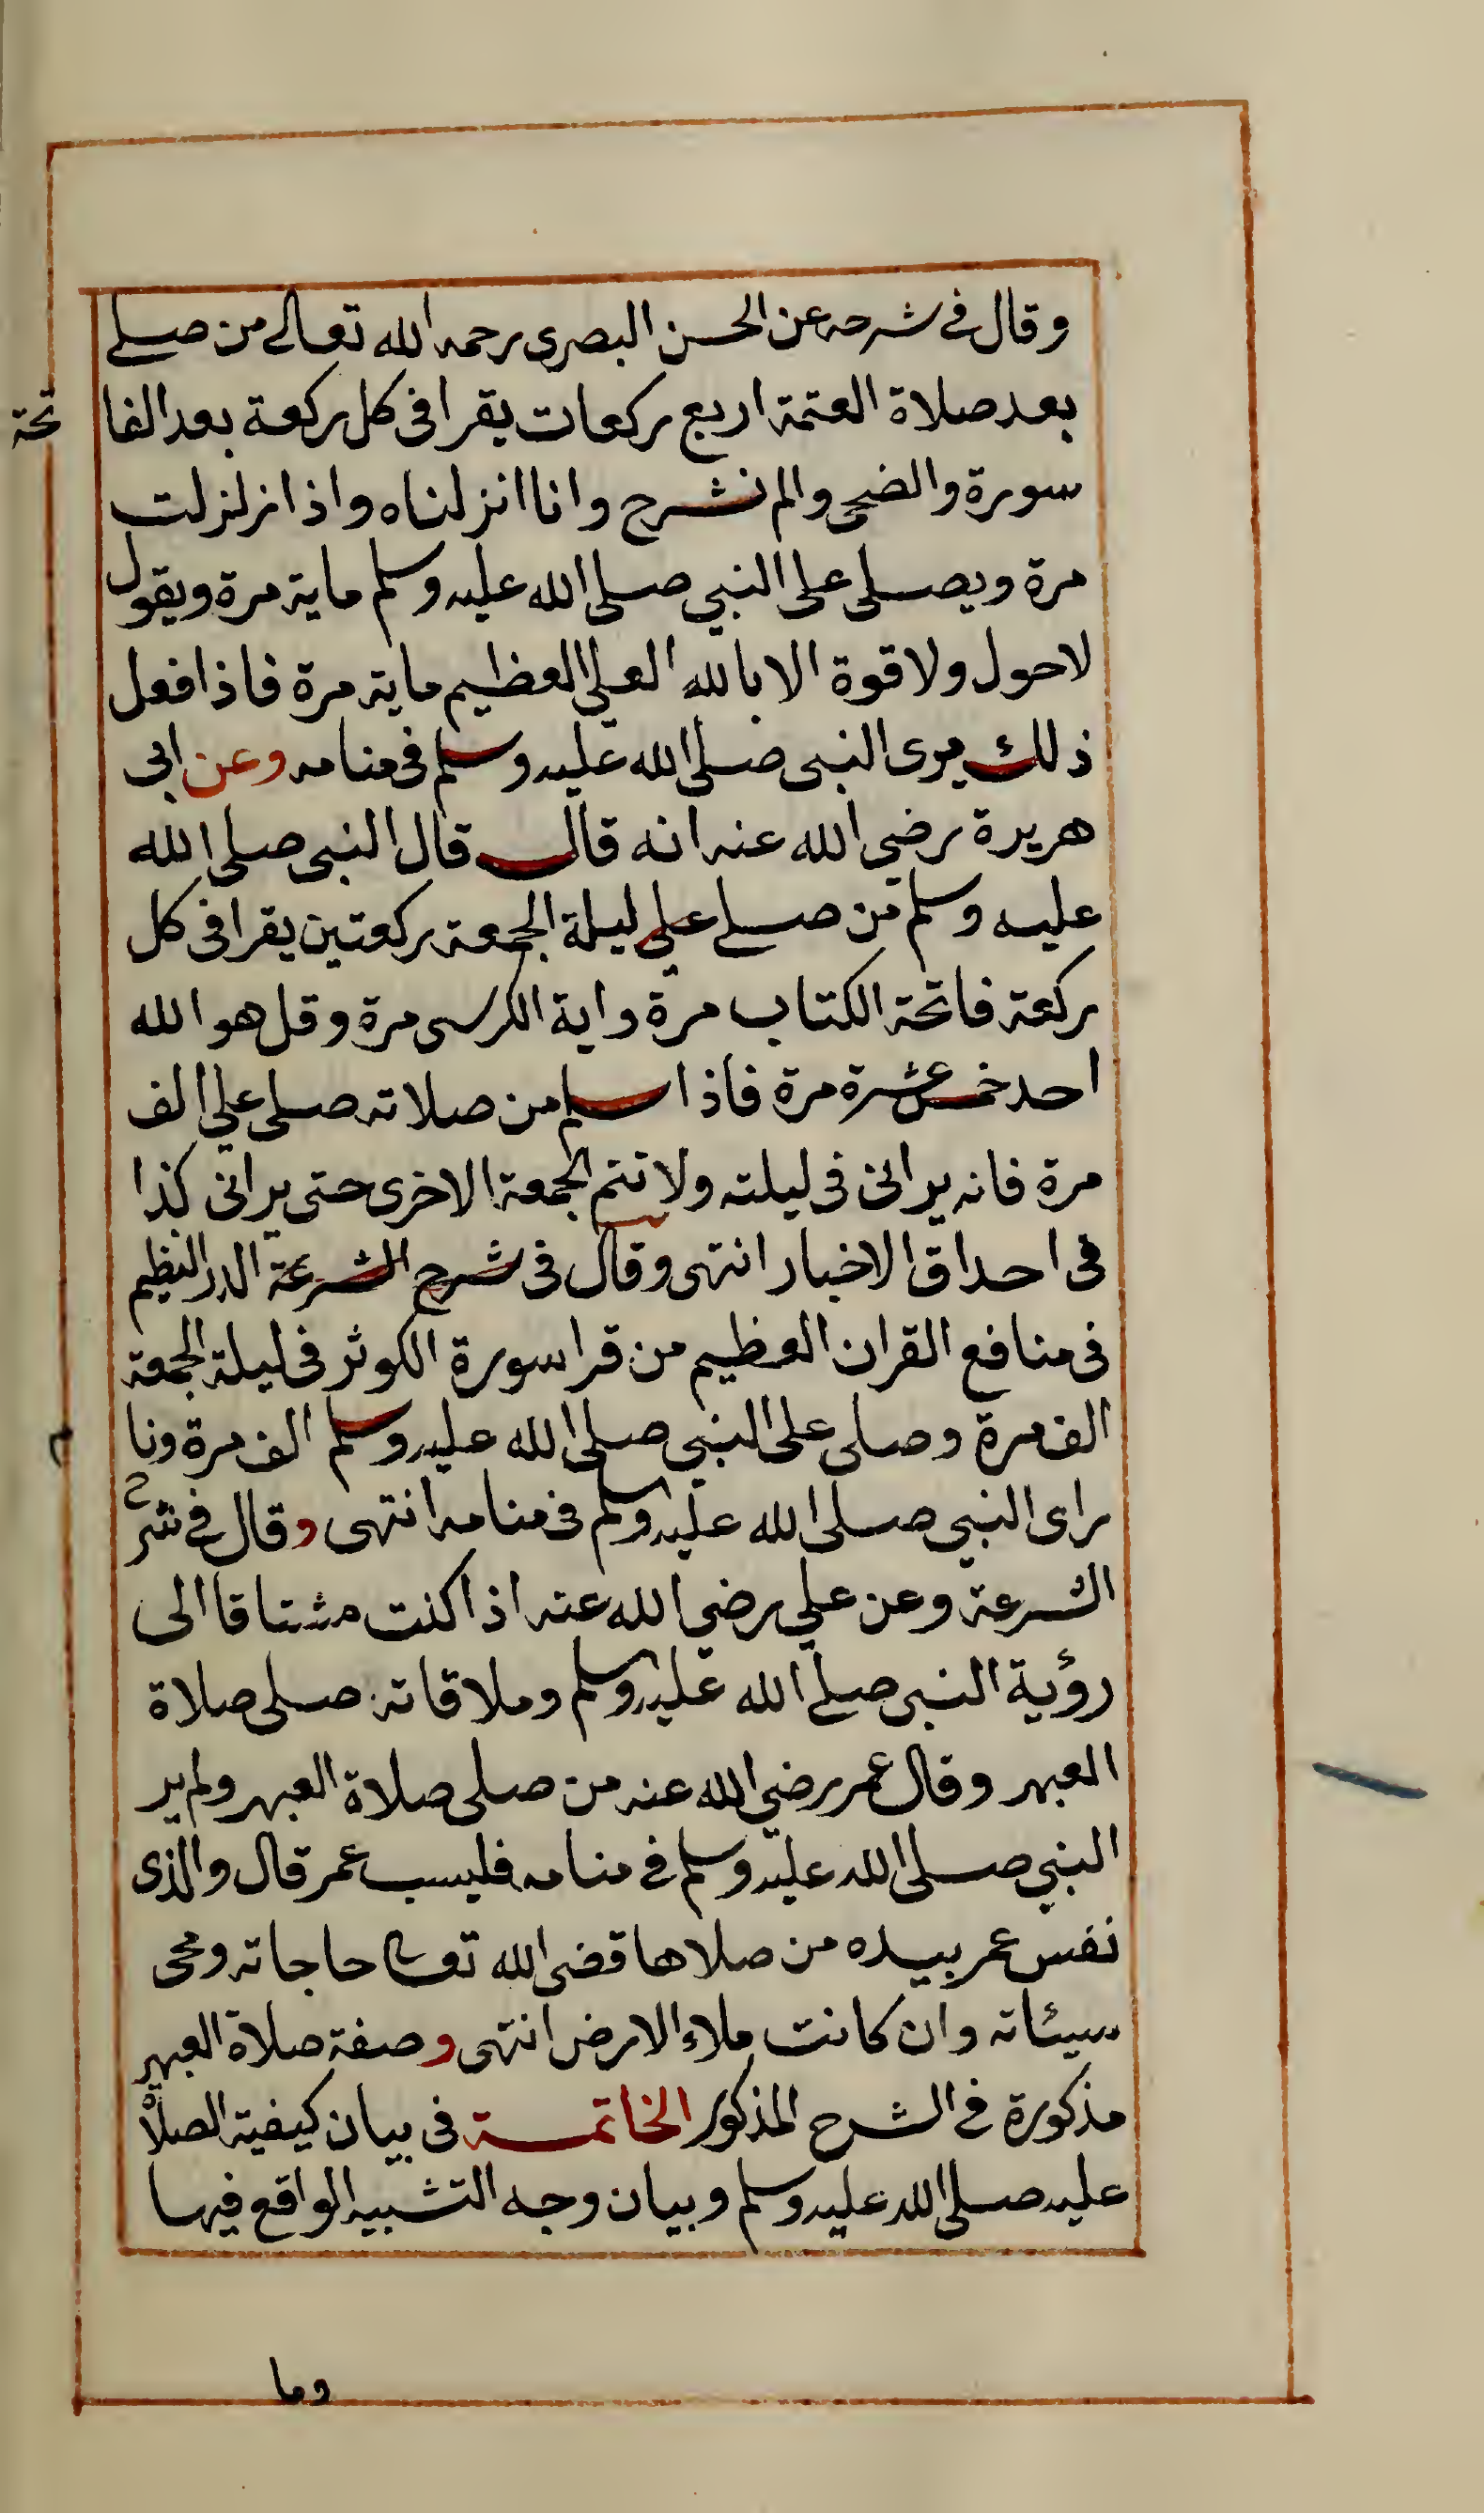 وقال في شرحه عن الحسن البصرى رحمه الله تعالى من صلى
بعد صلاة العتمة اربع ركعات يقرا فى كل ركعة بعد الفا تحة
سورة والضحى والم نشرح وانا انزلناه واذا زلزلت
مرة ويصلى على النبي صلى الله عليه وسلم ماية مرة ويقول
لاحول ولا قوة الا بالله العلى العظيم ماية مرة فاذا فعل
ذلك يرى النبى صلى الله عليه وسلم فى منامه وعن ابى
هريرة رضي الله عنه انه قال قال النبى صلى الله
عليه وسلم من صلى على ليلة الجمعة ركعتين يقرا فى كل
ركعة فاتحة الكتاب مرة واية الكرسى مرة وقل هو الله
احد خمس عشرة مرة فاذا سلم من صلاته صلى علي الف
مرة فانه يرانى فى ليلته ولا تتم الجمعة الاخرى حتى يرانى كذا
فى احداق الاخبار انتهى وقال فى شرح الشرعة الدر النظيم
فى منافع القران العظيم من قرا سورة الكوثر فى ليلة الجمعة
الف مرة وصلى على النبي صلى الله عليه وسلم الف مرة ونا م
راى النبي صلى الله عليه وسلم فى منامه انتهى وقال في شرح
الشرعة وعن علي رضي الله عنه اذا كنت مشتاقا الى
رؤية النبى صلى الله عليه وسلم وملاقاته صلى صلاة
العبهر وقال عمر رضي الله عنه من صلى صلاة العبهر ولم ير
النبي صلى الله عليه وسلم في منامه فليسب عمر قال والذى
نفس عمر بيده من صلاها قضى الله تعالى حاجاته ومحى
سيئاته وان كانت ملاء الارض انتهى وصفة صلاة العبهر
مذكورة في الشرح المذكور الخاتمة فى بيان كيفية الصلاة
عليه صلى الله عليه وسلم وبيان وجه التشبيه الواقع فيها
وما